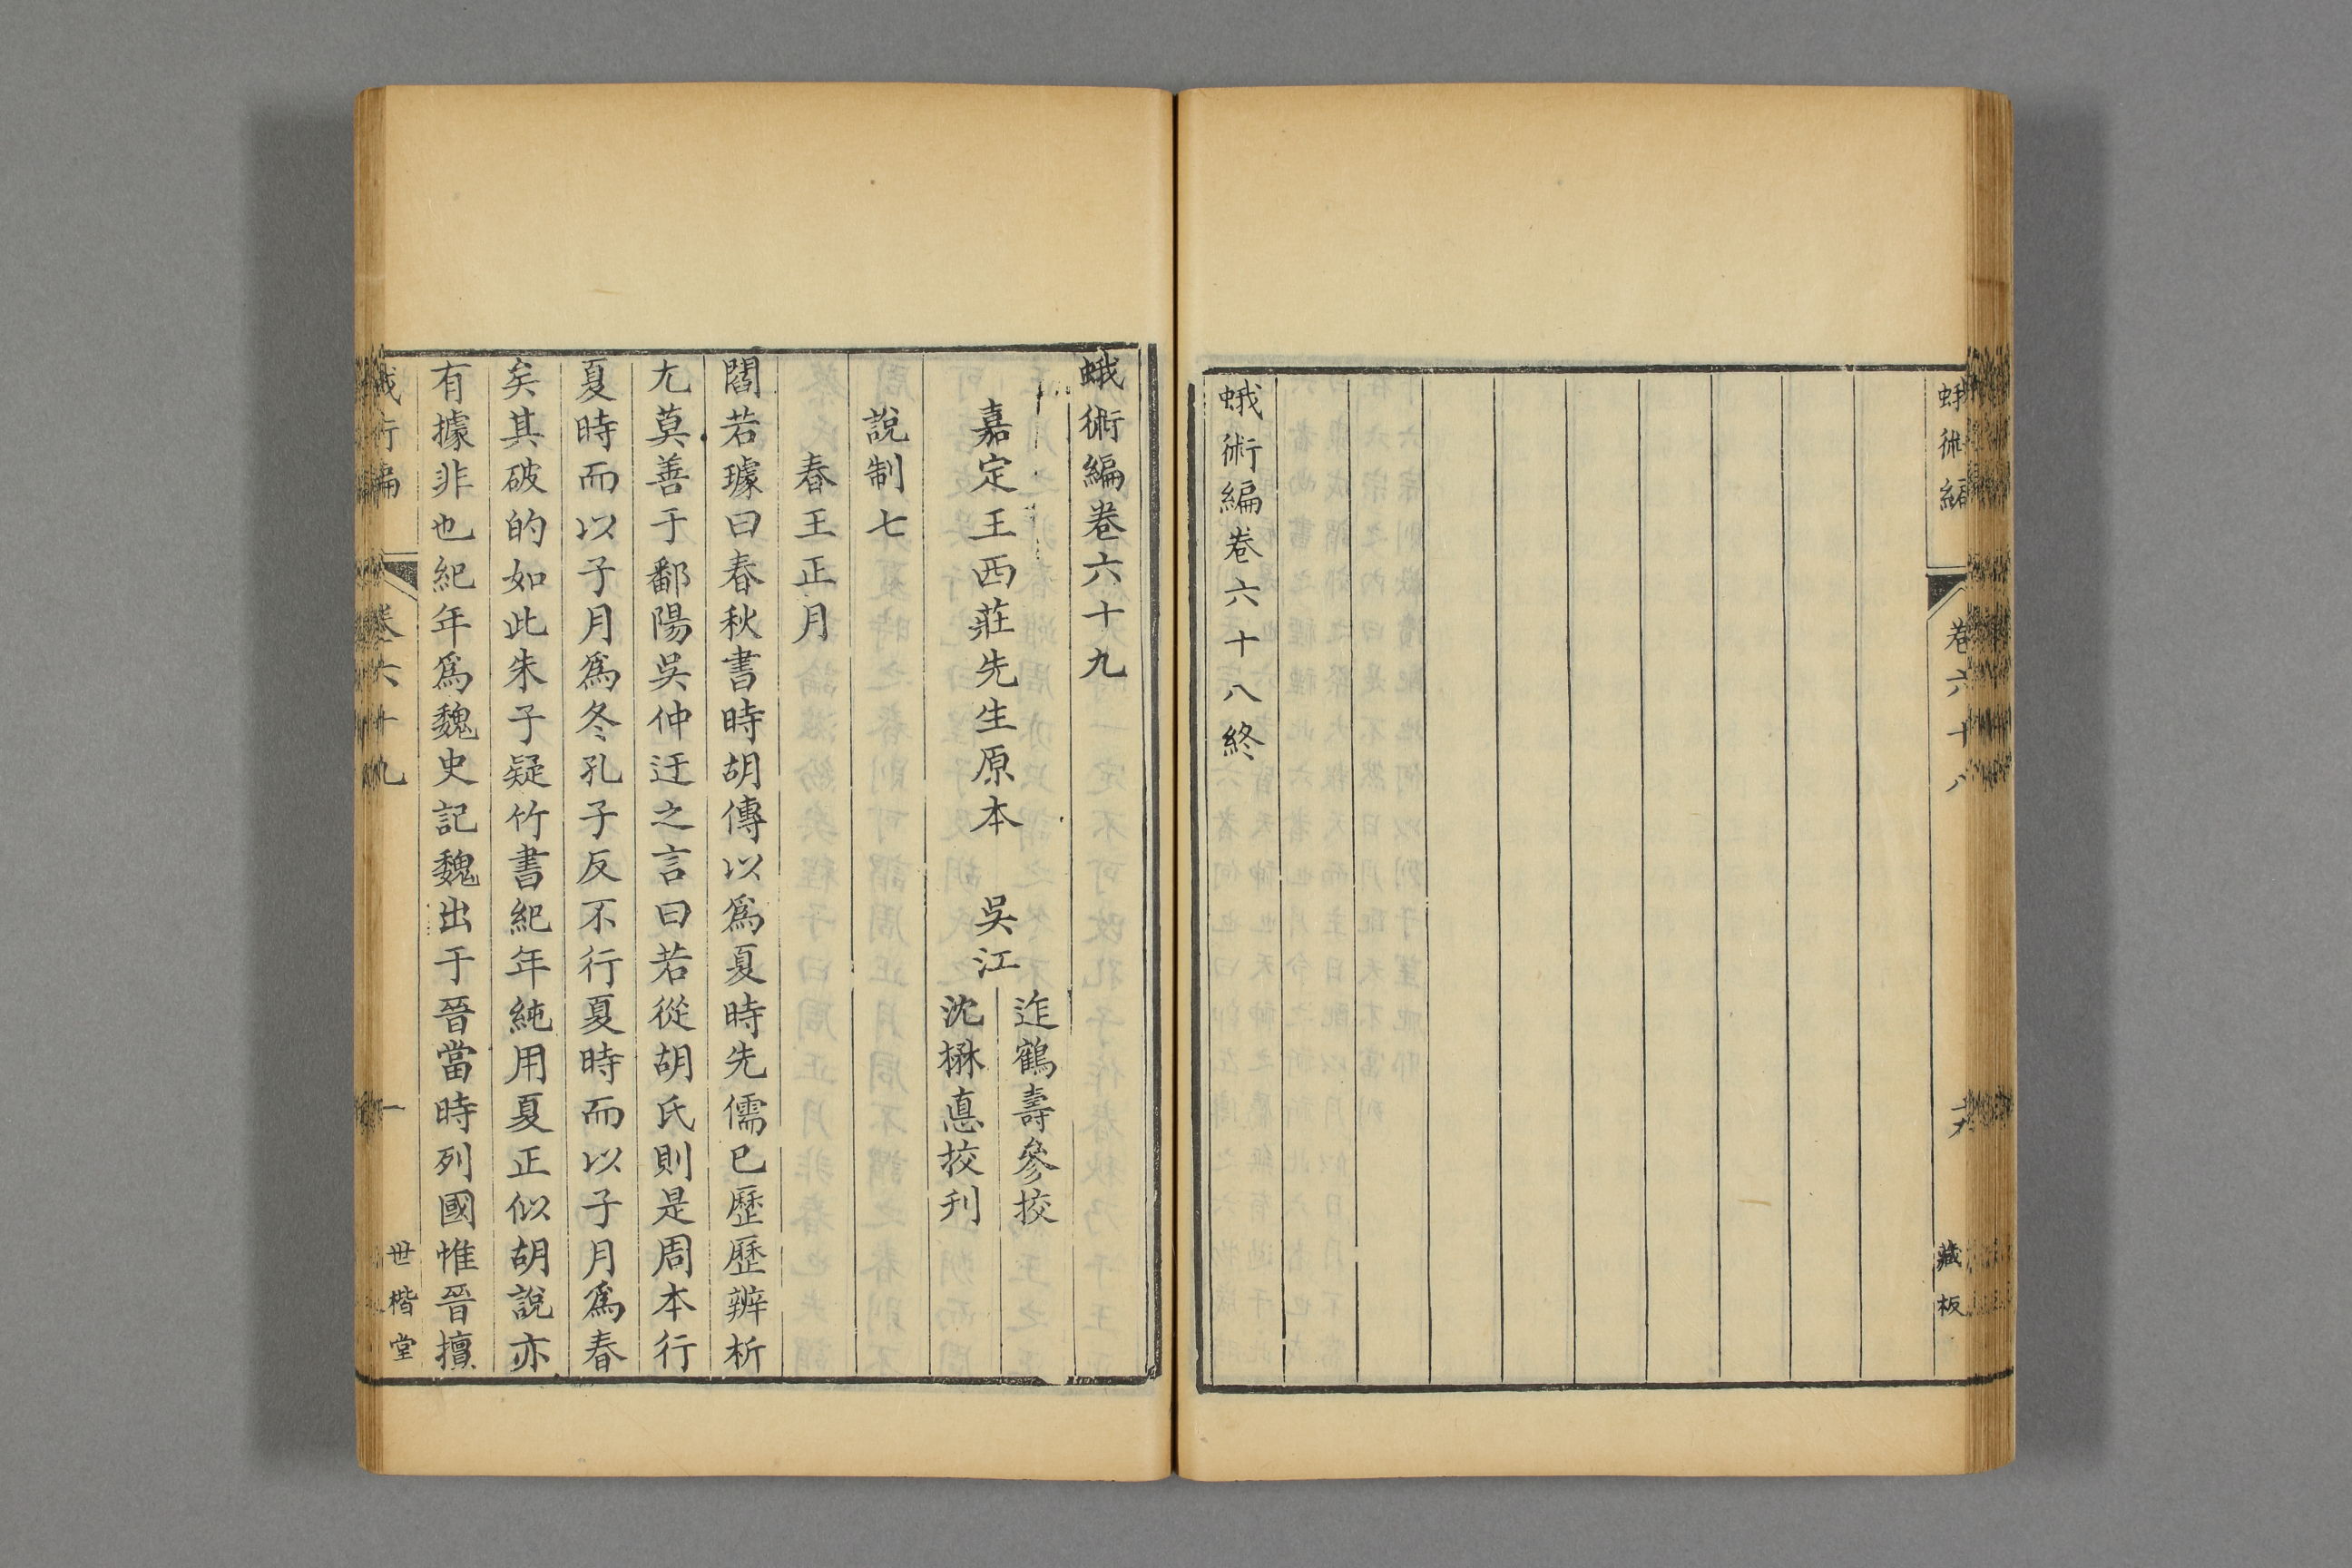 蛾術編
卷六十八
藏板
蛾術編卷六十八終
蛾術編卷六十九
嘉定王西莊先生原本 吳江
迮鶴壽參挍
沈楙悳挍刋
說制七
春王正月
閻若璩曰春秋書時胡傳以爲夏時先儒已歷歷辨析
尢莫善于鄱陽吳仲迂之言曰若從胡氏則是周本行
夏時而以子月爲冬孔子反不行夏時而以子月爲春
矣其破的如此朱子疑竹書紀年純用夏正似胡說亦
有據非也紀年爲魏史記魏出于晉當時列國惟晉擅
蛾術編
卷六十九
一
世楷堂